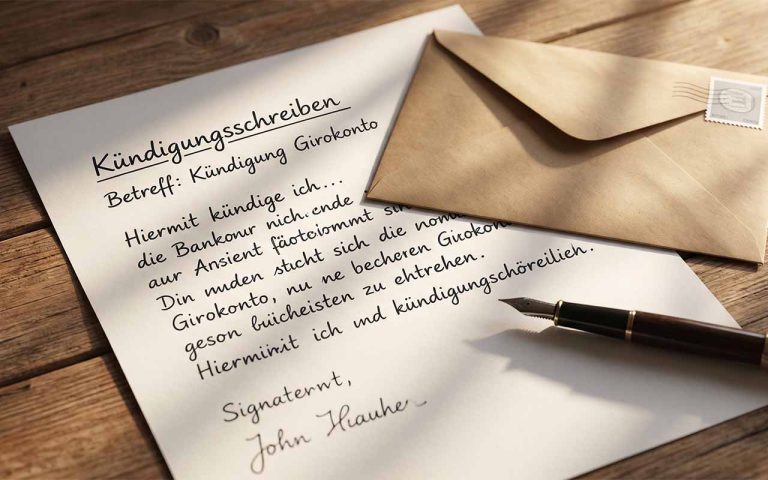 Kündigungsschreiben
Betreff: Kündigung Girokonto
Hiermit kündige ich...
die Bankonur nich.ende
aur Ansient fäotciommt
Din nuden stcht sich die
Girokonto, nu ne becheren
geson büicheisten zu ehtrehen.
Hiermiwit ich und kündigungschöreilieh.
Signaternt,
John